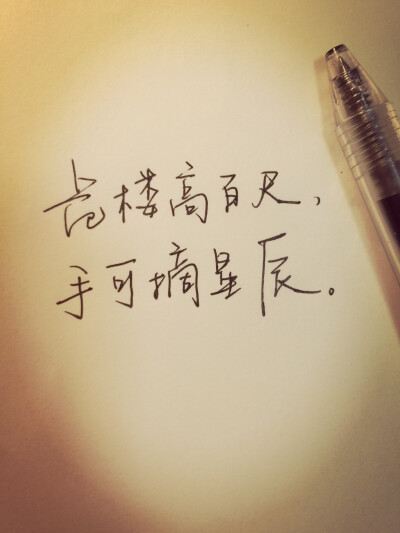 危楼高百尺，
手可摘星辰。